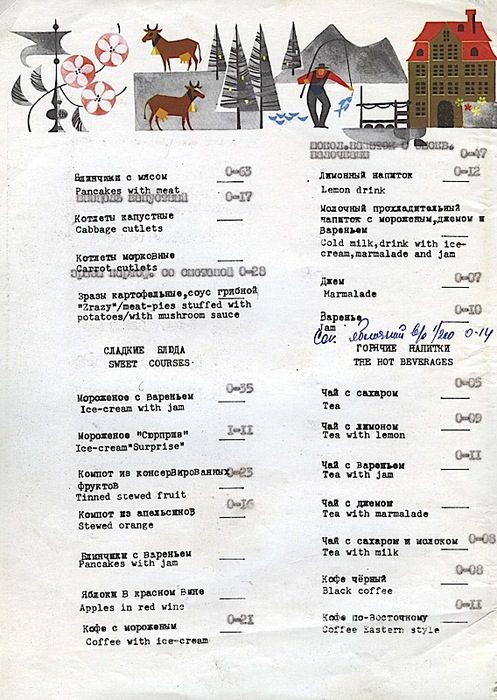 Блинчики с мясом 0-63
Pancakes with meat
0-17
Котлеты капустные
Cabbage cutlets
Котлеты морковные
Carrot cutlets
со сметаной 0-28
Зразы картофельные,соус грибной
"Zrazy"/meat-pies stuffed with
potatoes/with mushroom sauce
СЛАДКИЕ БЛЮДА
SWEET COURSES
Мороженое с вареньем 0-35
Ice-cream with jam
Мороженое "Сюрприз" 1-11
Ice-cream"Surprise"
Компот из консервированных 0-23
фруктов
Tinned stewed fruit
Компот из апельсинов 0-16
Stewed orange
Блинчики с вареньем
Pancakes with jam
Яблоки в красном вине
Apples in red wine
Кофе с мороженым 0-21
Coffee with ice-cream
0-47
Лимонный напиток 0-12
Lemon drink
Молочный прохладительный
напиток с мороженым,джемом и
Вареньем
Cold milk,drink with ice-
cream,marmalade and jam
Джем 0-07
Marmalade
Варенье 0-10
Jam
Сок яблочный 1/200 0-14
ГОРЯЧИЕ НАПИТКИ
THE HOT BEVERAGES
Чай с сахаром 0-05
Tea
Чай с лимоном 0-09
Tea with lemon
Чай с вареньем 0-11
Tea with jam
Чай с джемом
Tea with marmalade
Чай с сахаром и молоком 0-08
Tea with milk
Кофе чёрный 0-08
Black coffee
Кофе по-Восточному 0-11
Coffee Eastern style